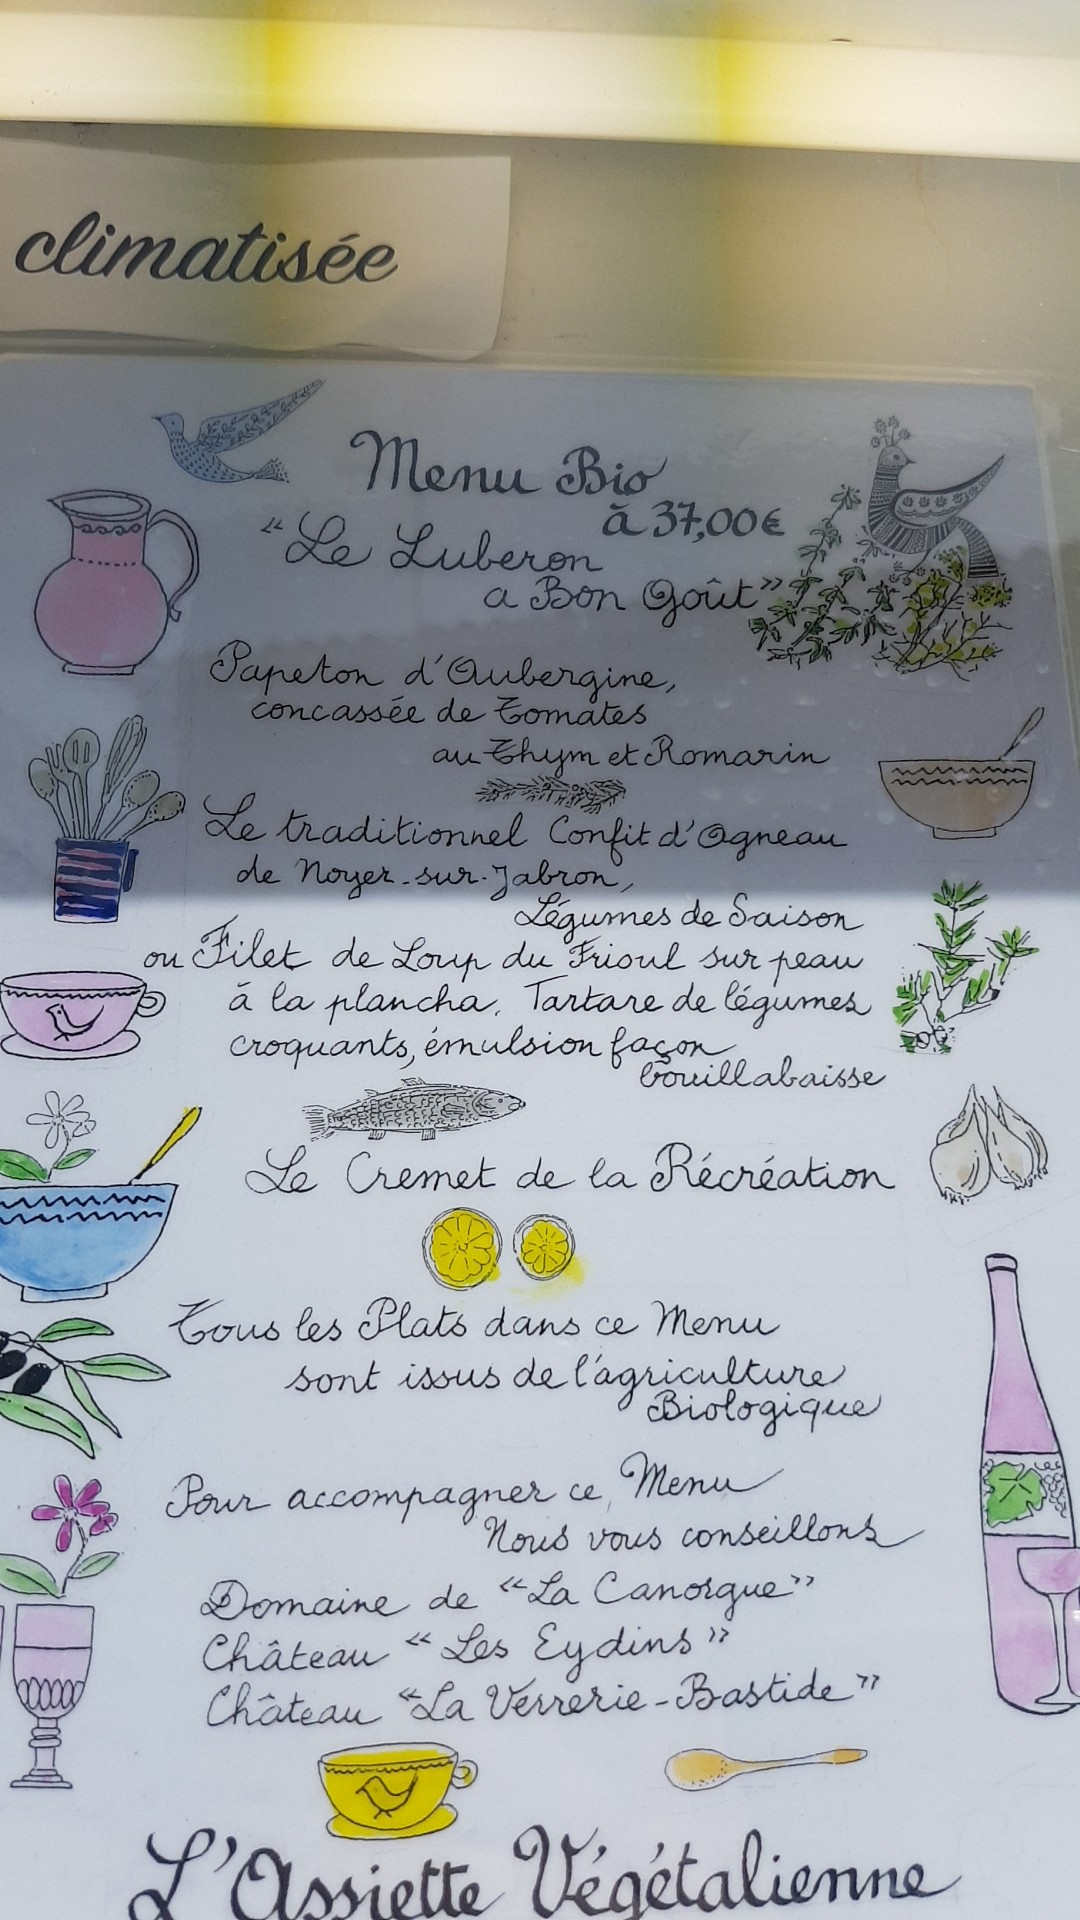 climatisée
Menu Bio
à 37,00€
"Le Luberon
a Bon Goût"
Papeton d'Aubergine,
concassée de Tomates
au Thym et Romarin
Le traditionnel Confit d'Agneau
de Noyer-sur-Jabron,
Légumes de Saison
ou Filet de Loup du Frioul sur peau
à la plancha, Tartare de légumes
croquants, émulsion façon
bouillabaisse
Le Cremet de la Récréation
Tous les Plats dans ce Menu
sont issus de l'agriculture
Biologique
Pour accompagner ce Menu
Nous vous conseillons
Domaine de "La Canorgue"
Château "Les Eydins"
Château "La Verrerie-Bastide"
L'Assiette Végétalienne